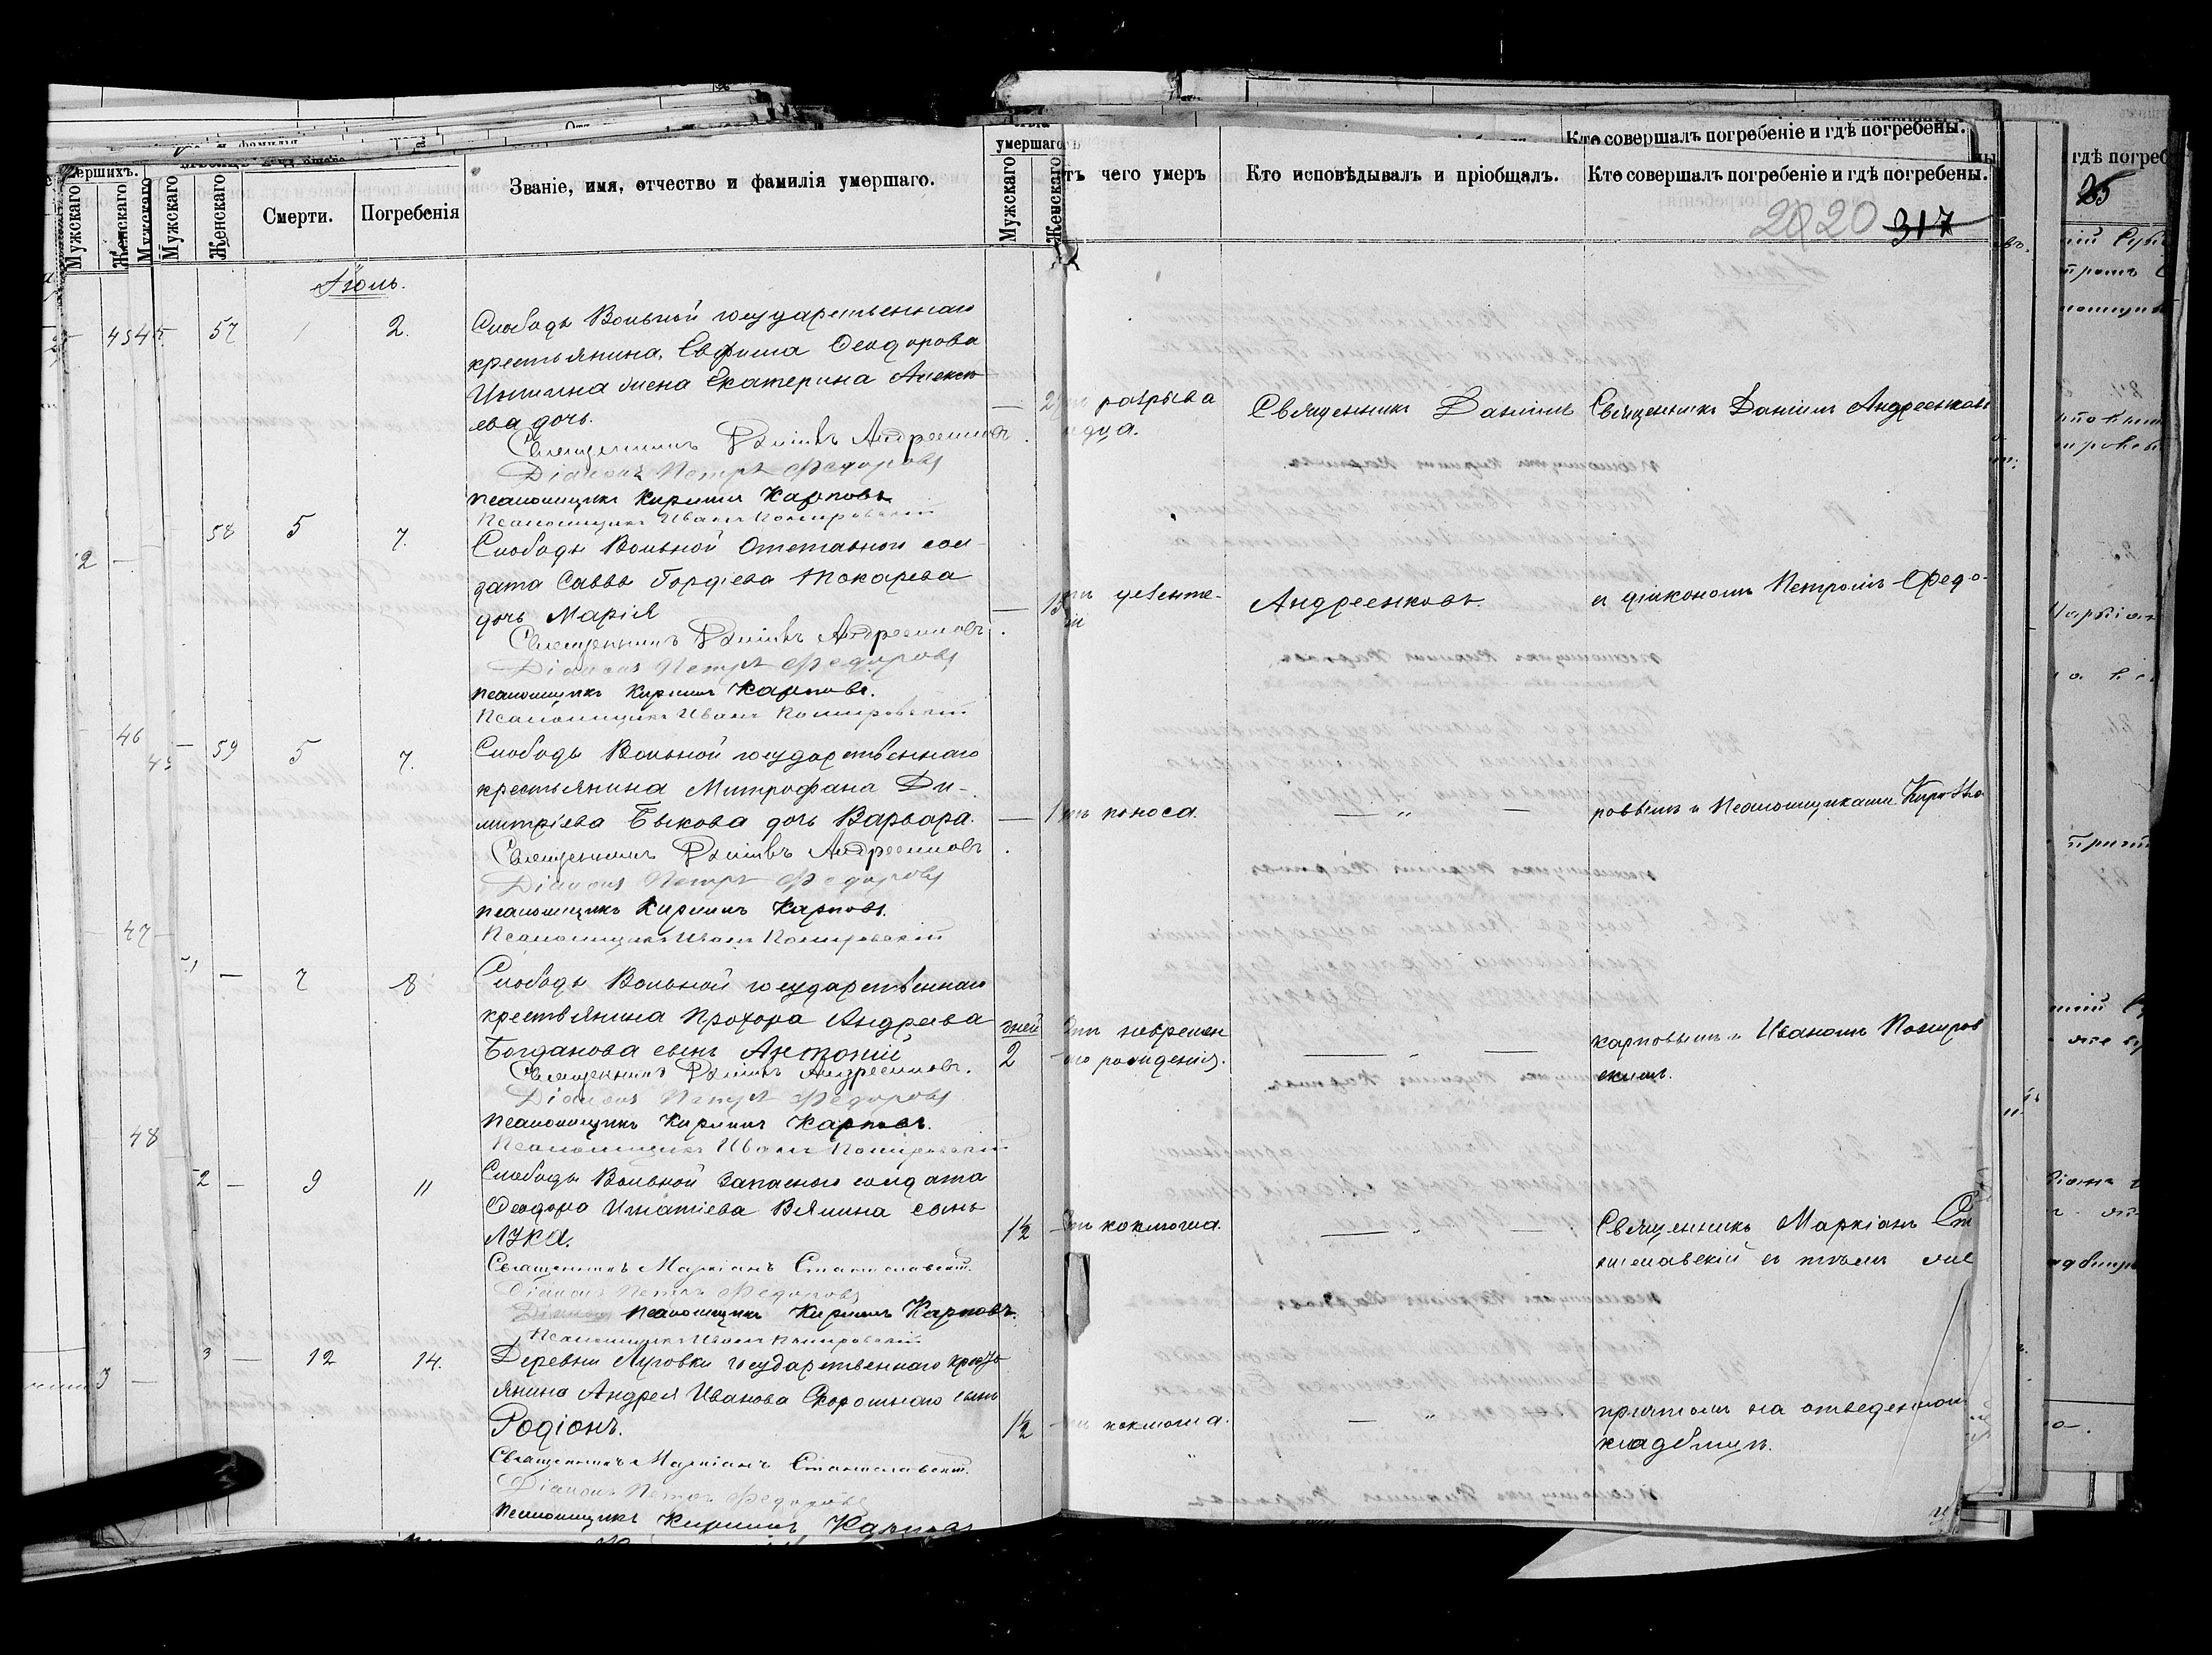 умершаго
Кто совершалъ погребеніе и гдѣ погребены.
ершихъ.
Мужскаго
Женскаго
Мужскаго
Мужскаго
Женскаго
Смерти.
Погребенія
Званіе, имя, отчество и фамилія умершаго.
Мужскаго
Женскаго
чего умеръ
Кто исповѣдывалъ и пріобщалъ.
Кто совершалъ погребеніе и гдѣ погребены.
гдѣ погреб
25
20 317
Іюль.
45 45 57 1 2.
Слободы Вольной государственнаго
крестьянина Евфима Ѳеодорова
жена Екатерина Алексѣ-
ева дочь.
разрыва
Священникъ Даніилъ
Священникъ Даніилъ Андреенковъ
Священникъ Даніилъ Андреенковъ
Діаконъ Петръ Федоровъ
Псаломщикъ Кириллъ Карповъ
Псаломщикъ Иванъ Пожировскій
2 — 58 5 7.
Слободы Вольной Отставнаго сол-
дата Саввы Гордіева Токарева
дочь Марія
—
Андреенковъ.
и діакономъ Петромъ Федо-
Священникъ Даніилъ Андреенковъ
Діаконъ Петръ Федоровъ
Псаломщикъ Кириллъ Карповъ.
Псаломщикъ Иванъ Пожировскій
46 45 — 59 5 7.
Слободы Вольной государственнаго
крестьянина Митрофана Ди-
митріева Быкова дочь Варвара.
— 1
поноса.
— „ —
ровымъ и Псаломщиками
Священникъ Даніилъ Андреенковъ
Діаконъ Петръ Федоровъ
Псаломщикъ Кириллъ Карповъ.
Псаломщикъ Иванъ Пожировскій
47 —
— 7 8
Слободы Вольной государственнаго
крестьянина Прохора Андреева
Богданова сынъ Антоній
дней
2
рожденія.
— „ —
Карповымъ и Иваномъ Пожиров
скимъ.
Священникъ Даніилъ Андреенковъ.
Діаконъ Петръ Федоровъ
Псаломщикъ Кириллъ Карповъ.
Псаломщикъ Иванъ Пожировскій
48
2 — 9 11
Слободы Вольной Запаснаго солдата
Ѳеодора Игнатіева Вялина сынъ
Лука.
1/2
коклюша.
— „ —
Священникъ Маркіанъ Ста
ниславскій съ тѣмъ же
Священникъ Маркіанъ Станиславскій.
Діаконъ Петръ Федоровъ
Псаломщикъ Кириллъ Карповъ.
Псаломщикъ Иванъ Пожировскій
3 — 3 — 12 14.
Деревни Луговки государственнаго кресть
янина Андрея Иванова Скорошнаго сынъ
Родіонъ.
1/2
коклюша.
— „ —
причтомъ на отведенномъ
кладбищѣ.
Священникъ Маркіанъ Станиславскій.
Діаконъ Петръ Федоровъ
Псаломщикъ Кириллъ Карповъ